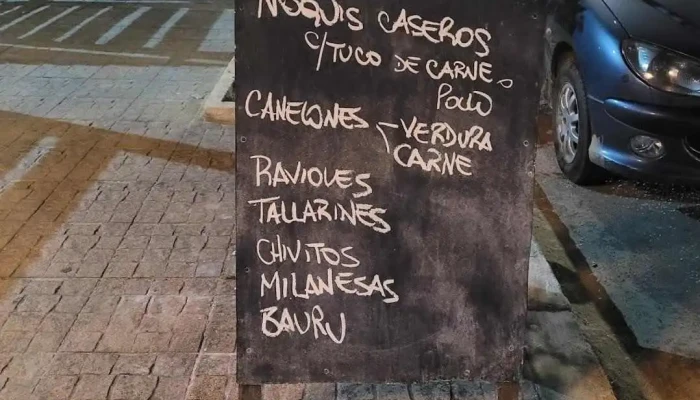 ÑOQUIS CASEROS
C/TUCO DE CARNE o
POLLO
CANELONES
VERDURA
CARNE
RAVIOLES
TALLARINES
CHIVITOS
MILANESAS
BAURU